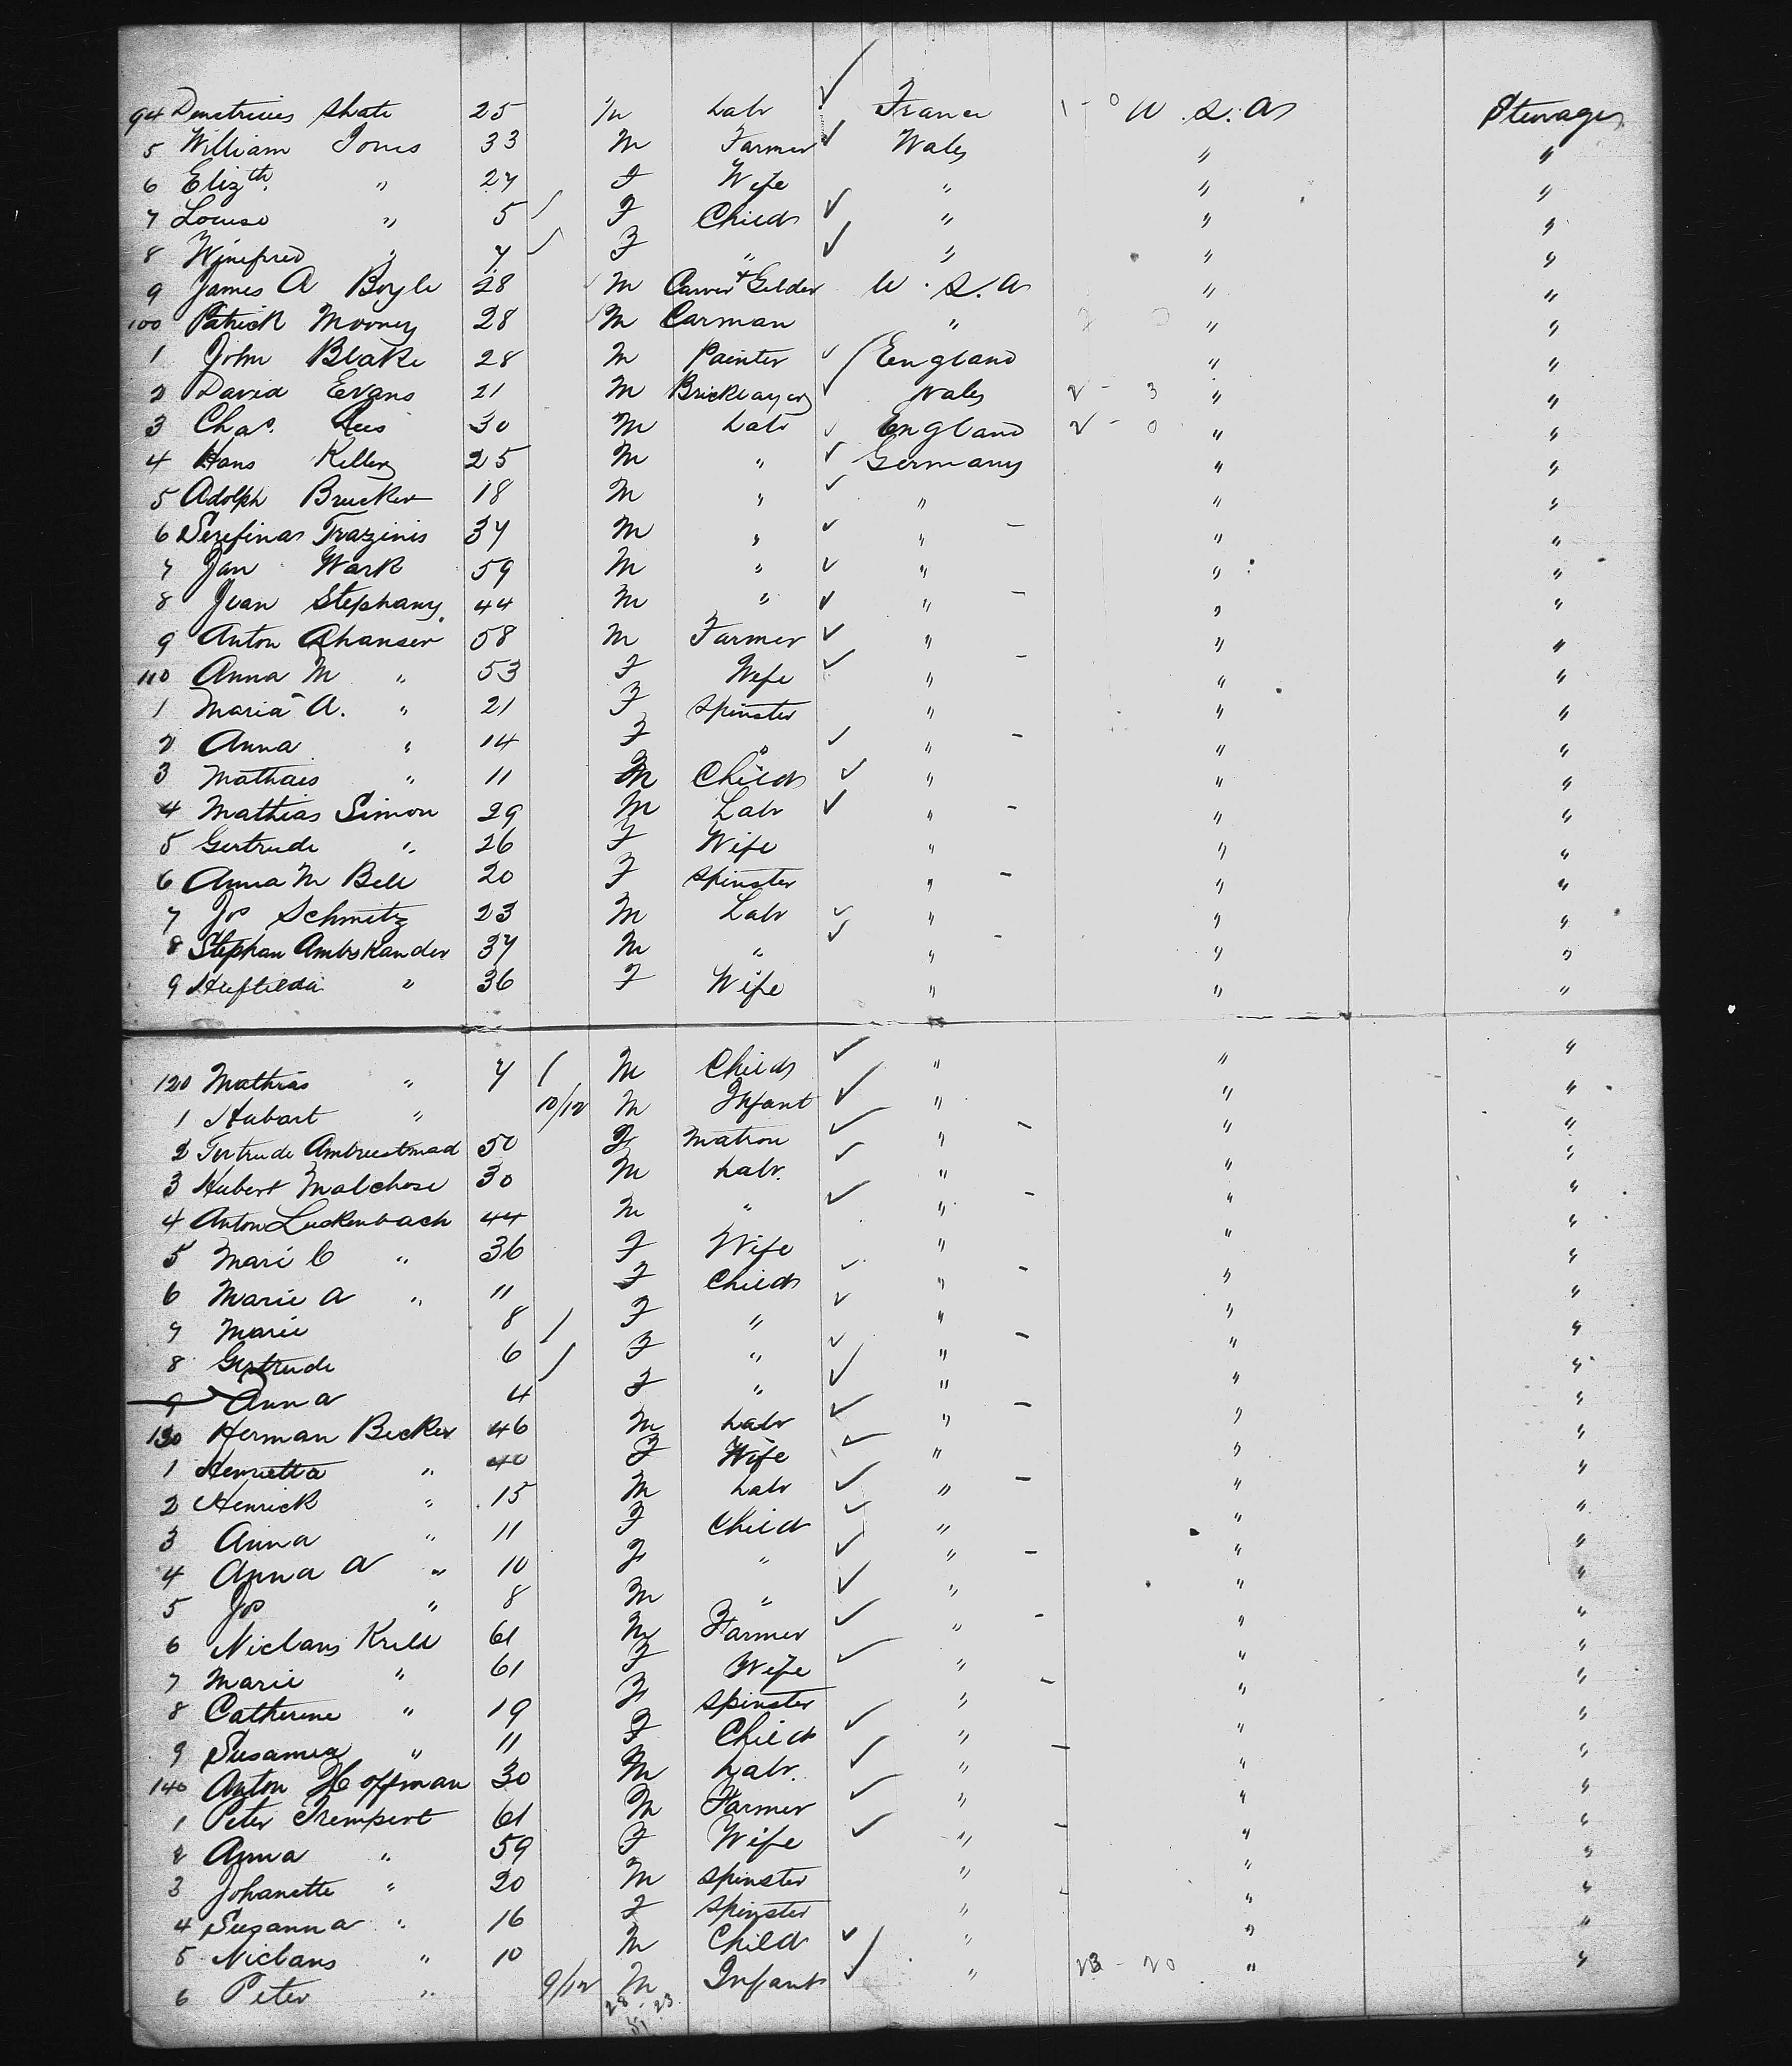 94 Demetrius Shate 25 M Labr France 1 - 0 U.S.A Steerage
5 William Jones 33 M Farmer Wales " "
6 Elizth. " 27 F Wife " " "
7 Louise " 5 F Child " " "
8 Winefred " 7 F " " " "
9 James A Boyle 28 M Carver & Gilder U.S.A " "
100 Patrick Mooney 28 M Carman " " "
1 John Blake 28 M Painter England " "
2 David Evans 21 M Bricklayer Wales 2 - 3 " "
3 Chas. Lees 30 M Labr England 2 - 0 " "
4 Hans Killer 25 M " Germany " "
5 Adolph Brucker 18 M " " " "
6 Serefinas Trazinis 37 M " " " "
7 Jan Wark 59 M " " " "
8 Jean Stephany 44 M " " " "
9 Anton Ahanser 58 M Farmer " " "
110 Anna M " 53 F Wife " " "
1 Maria A. " 21 F Spinster " " "
2 Anna " 14 F " " " "
3 Mathais " 11 M Child " " "
4 Mathias Simon 29 M Labr " " "
5 Gertrude " 26 F Wife " " "
6 Anna M Bell 20 F Spinster " " "
7 Jos Schmitz 23 M Labr " " "
8 Stephan Ambskander 37 M " " " "
9 " 36 F Wife " " "
120 Mathias " 7 M Child " " "
1 Hubart " 10/12 M Infant " " "
2 Tertrude Ambrustmad 50 F Matron " " "
3 Hubert Malchose 30 M Labr. " " "
4 Anton Luckenbach 44 M " " " "
5 Mari C " 36 F Wife " " "
6 Marie A " 11 F Child " " "
7 Marie 8 F " " " "
8 Gertrude 6 F " " " "
9 Anna 4 F " " " "
130 Herman Becker 46 M Labr " " "
1 Henrietta " 40 F Wife " " "
2 Henrick " 15 M Labr " " "
3 Anna " 11 F Child " " "
4 Anna A " 10 F " " " "
5 Jos " 8 M " " " "
6 Niclaus Krill 61 M Farmer " " "
7 Marie " 61 F Wife " " "
8 Catherine " 19 F Spinster " " "
9 Susanna " 11 F Child " " "
140 Anton Hoffman 30 M Labr. " " "
1 Peter Trempert 61 M Farmer " " "
2 Anna " 59 F Wife " " "
3 Johanette " 20 M Spinster " " "
4 Susanna " 16 F Spinster " " "
5 Niclaus " 10 M Child " " "
6 Peter " 9/12 M Infant " 23 - 20 " "
28 - 23
51